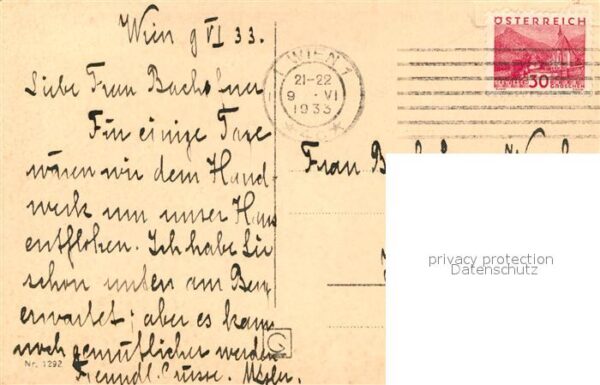 Wien 9 VI 33.
Liebe Frau Bachofner
Für einige Tage
wären wir dem Hand
werk um unser Haus
entflohen. Ich habe Sie
schon unten am Berg
erwartet; aber es kann
noch gemütlicher werden
Freundl. Grüsse.
Nr. 1292
WIEN 1
21-22
9 · VI
1933
ÖSTERREICH
30
Frau
privacy protection
Datenschutz